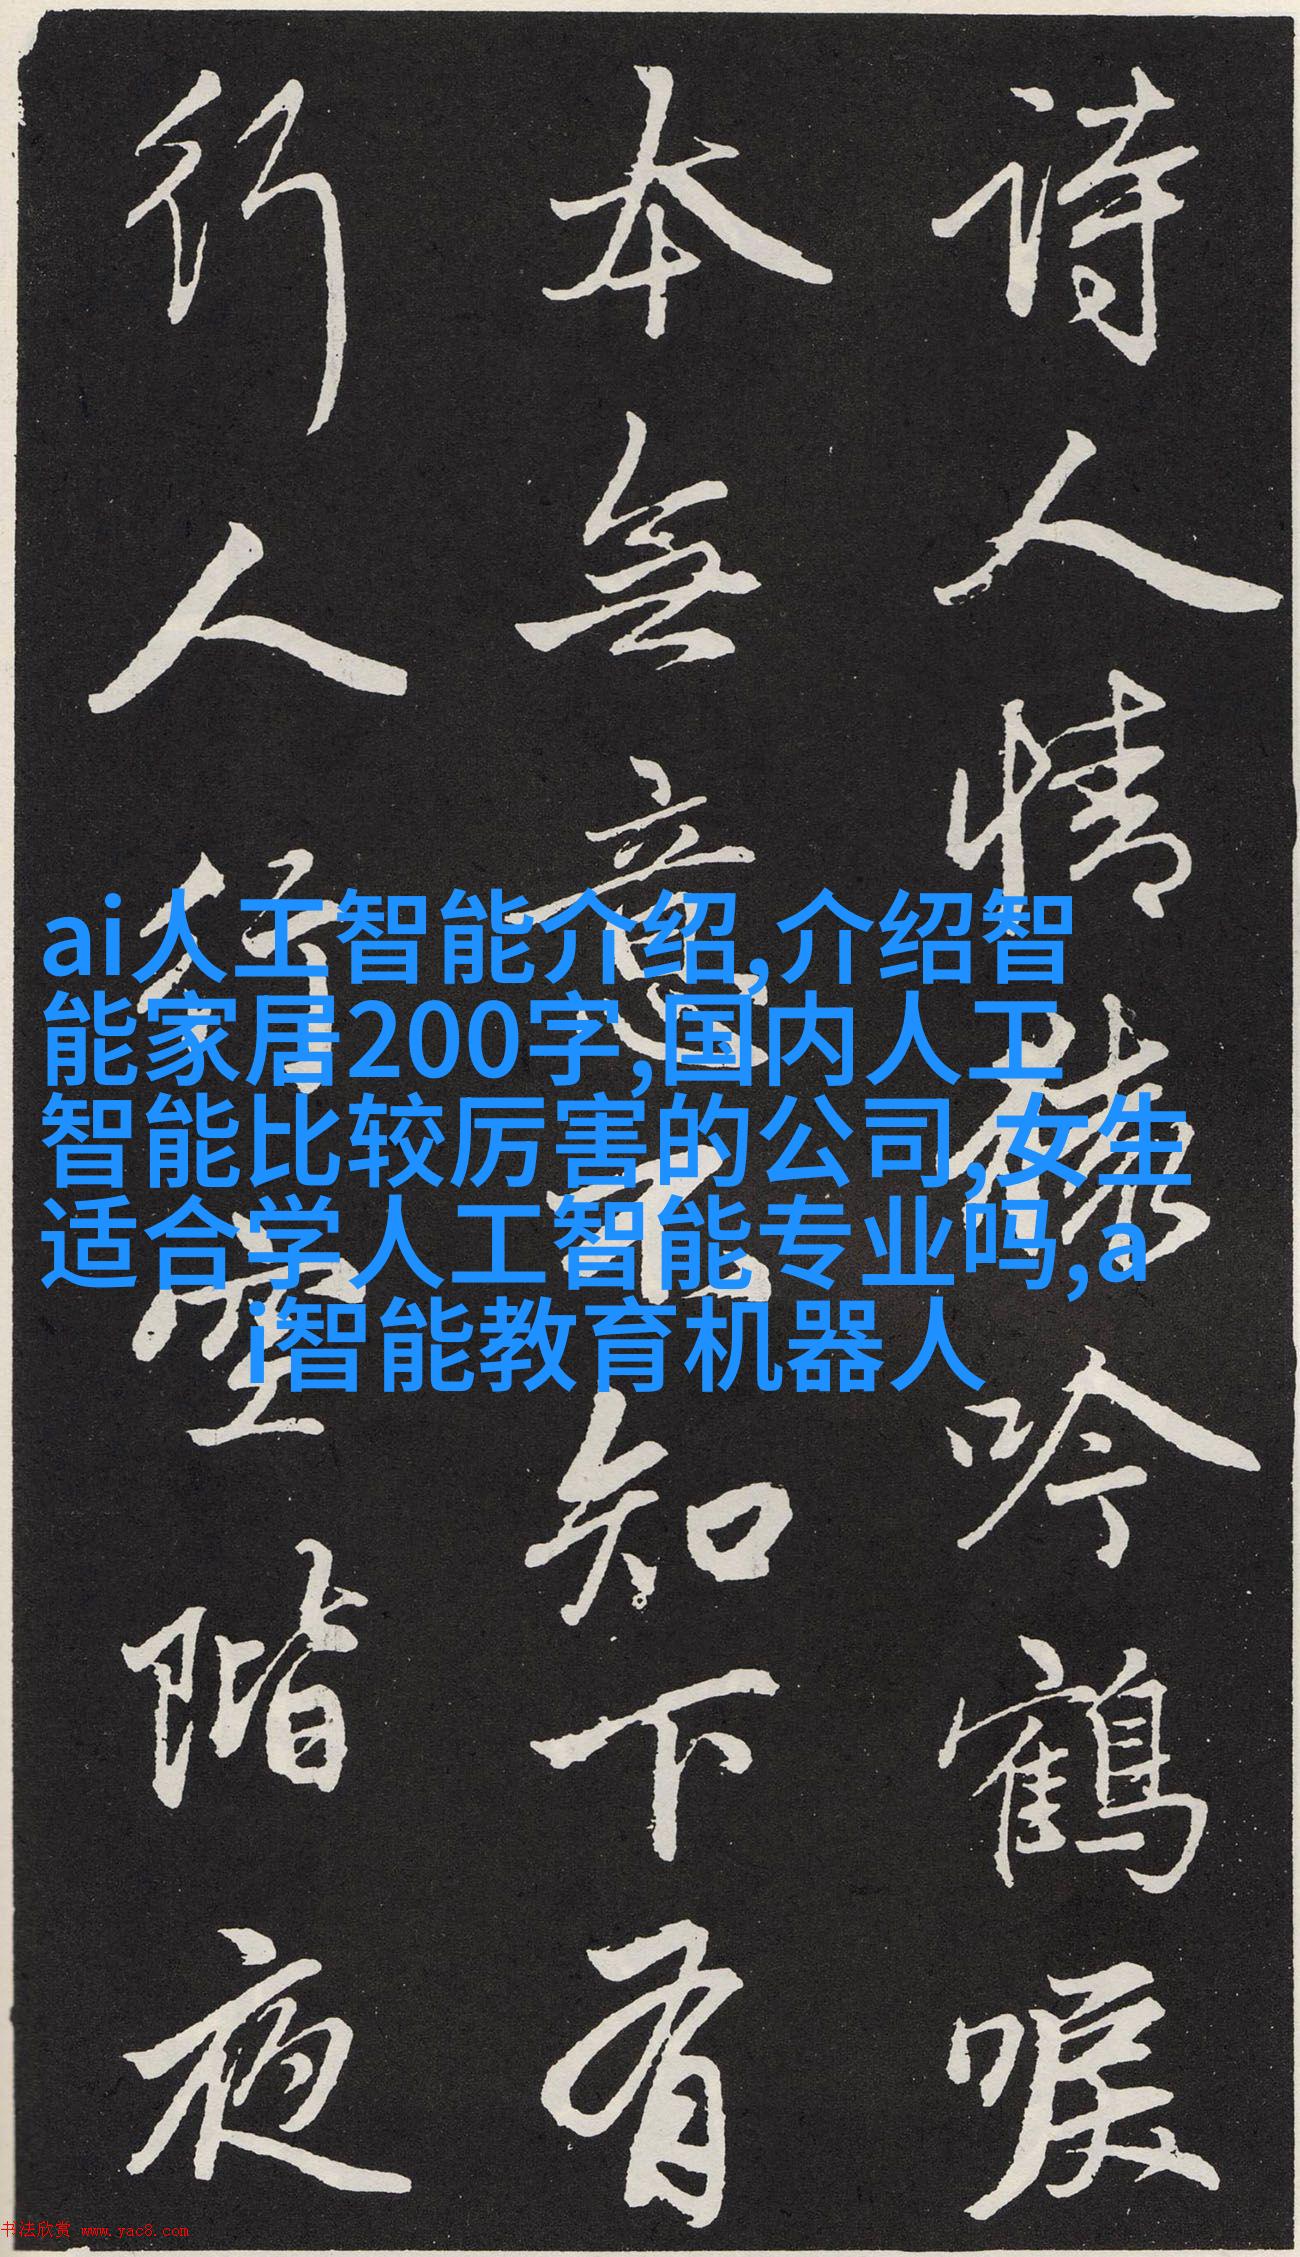 詩人情猿吟鶴唳
本無意不知下有
行人行空階夜
ai人工智能介绍,介绍智
能家居200字,国内人工
智能比较厉害的公司,女生
适合学人工智能专业吗,a
i智能教育机器人
书法欣赏 www.yac8.com